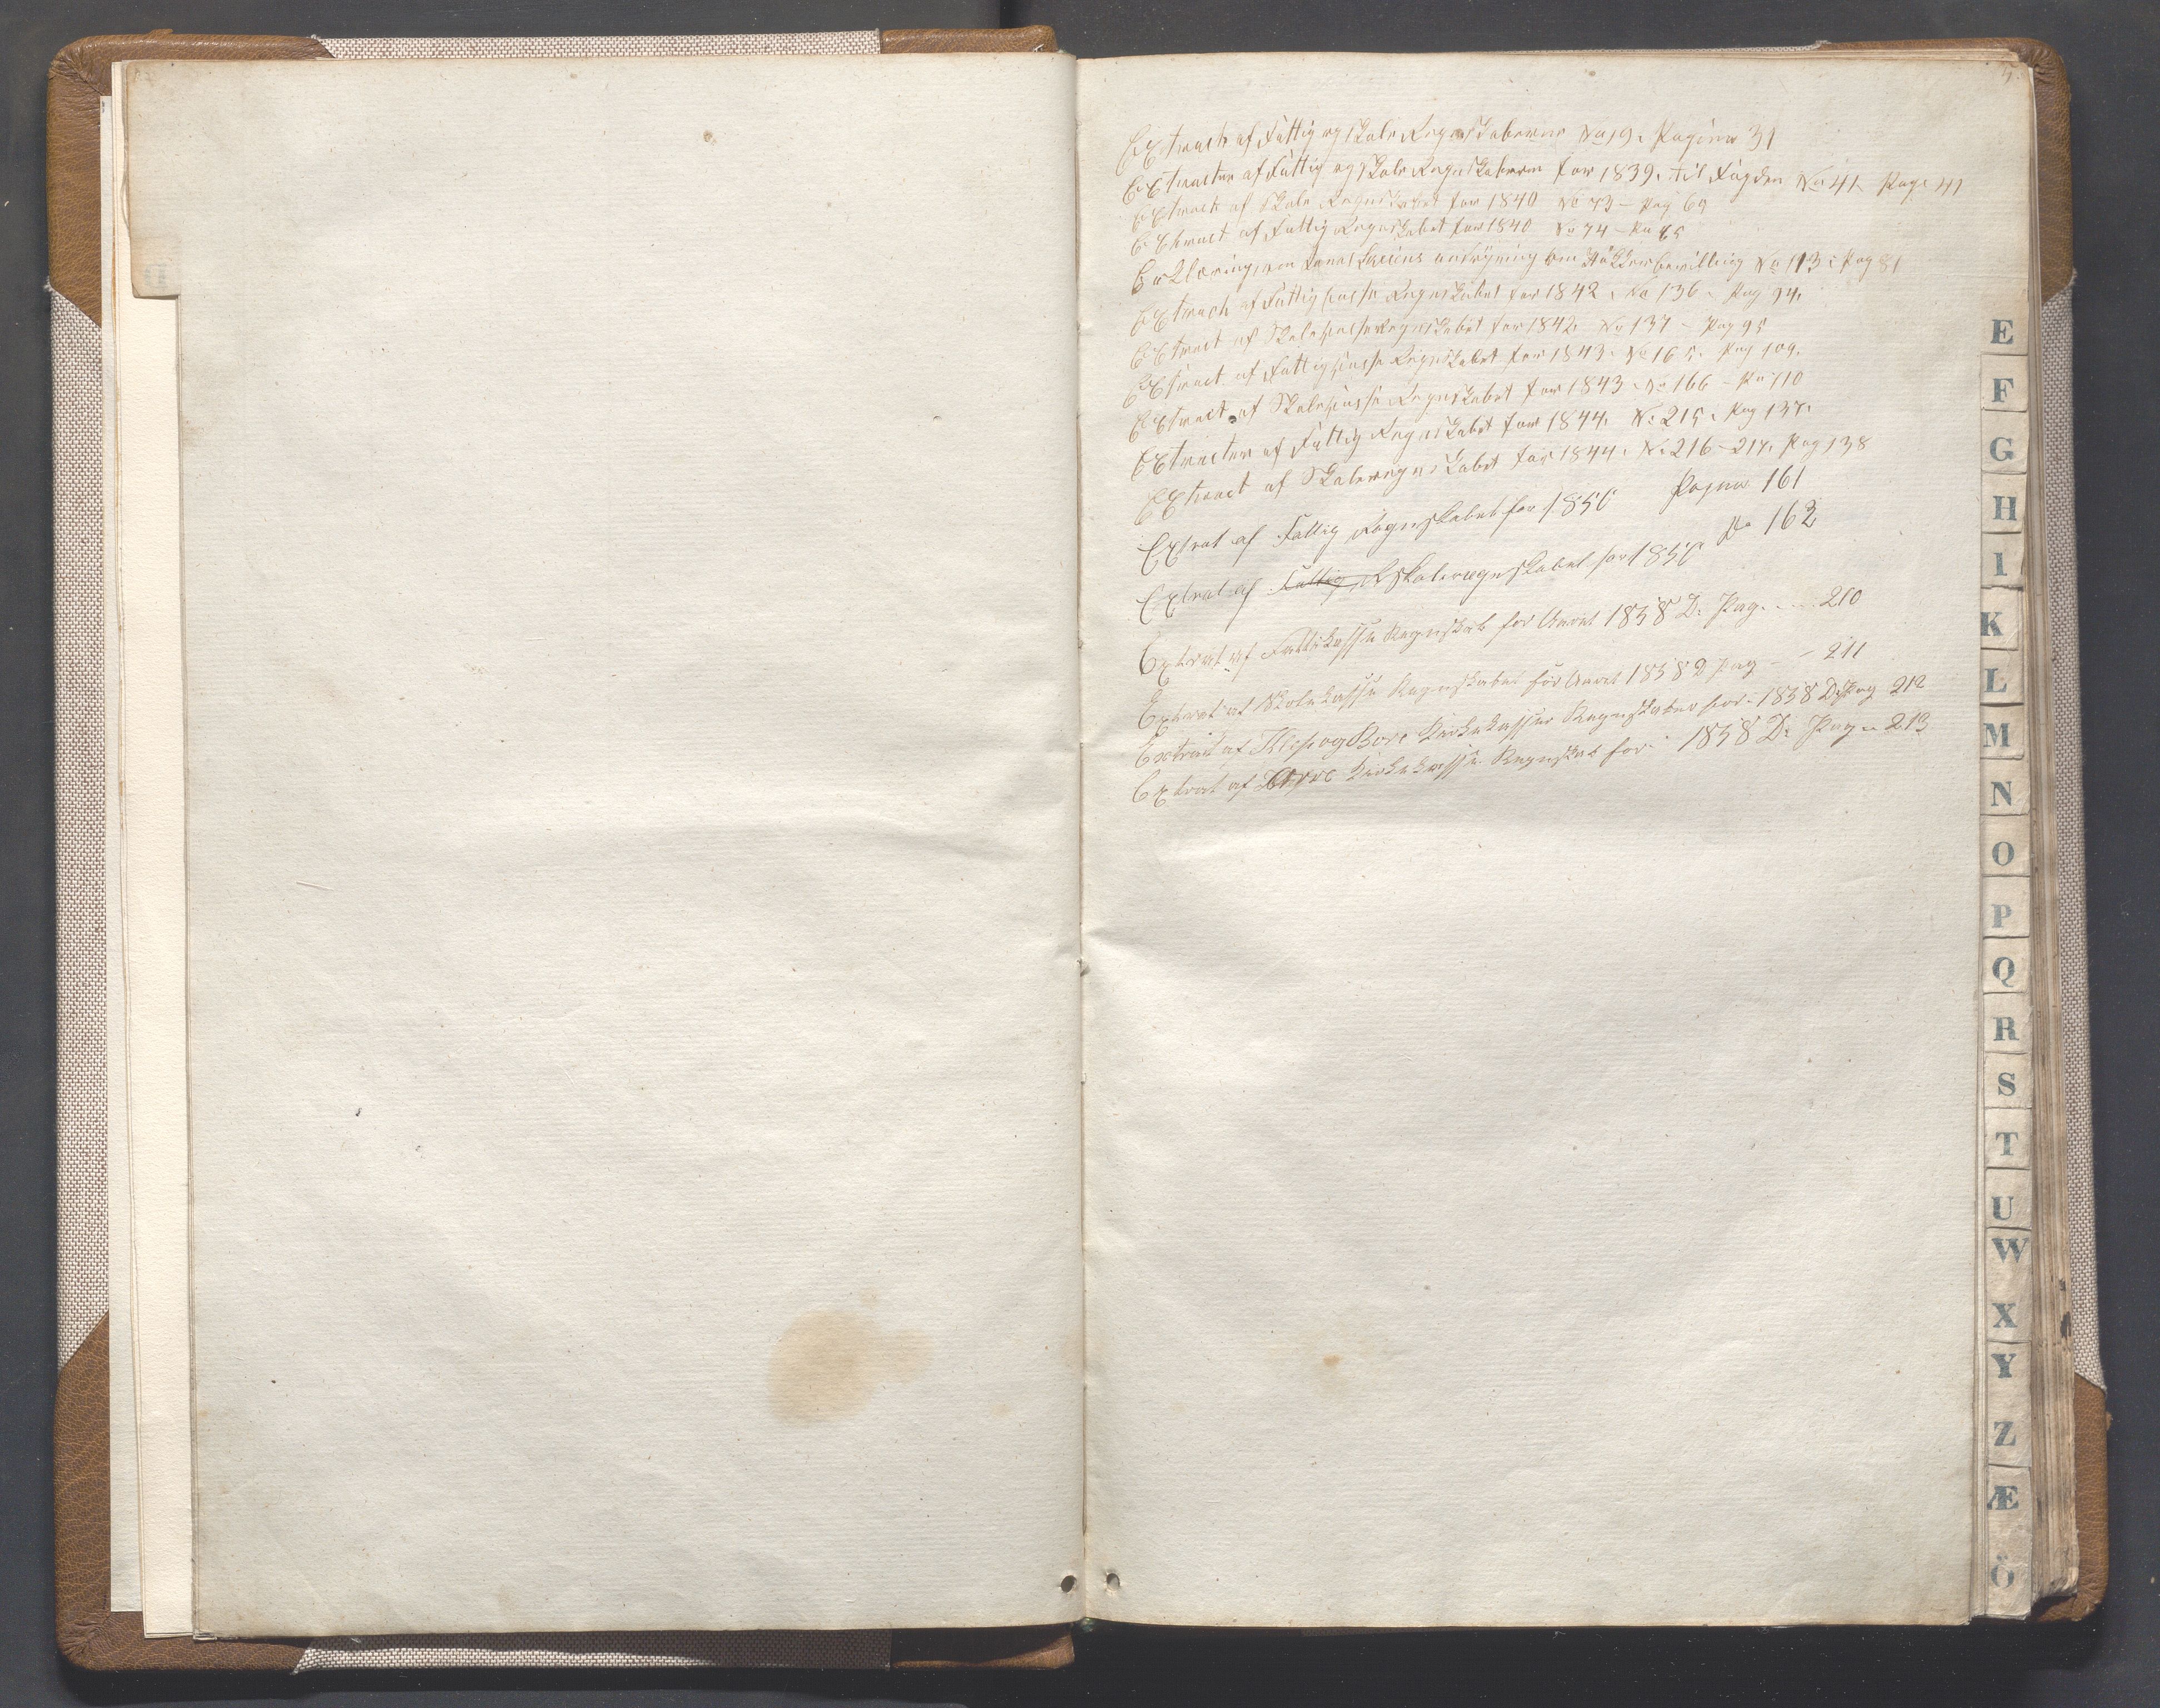 5.
Extract af Fattig og Skole Regnskaberne No 19. Pagina 31
Extracter af Fattig og Skole Regnskaberne for 1839. til Fogden No 41 Pag. 41
Extract af Skole Regnskabet for 1840 No 73 – Pag 64
Extract af Fattig Regnskabet for 1840 No 74 – Pa 65
Erklæring, om andragning om No 113 : Pag 81
Extract af Fattigkasse Regnskabet for 1842, No 136 – Pag 94.
Extract af Skolekasse Regnskabet for 1842. No 137 – Pag 95
Extract af Fattigkasse Regnskabet for 1843. No 165. Pag 109.
Extract af Skolekasse Regnskabet for 1843 – No 166 – Pa 110
Extracter af Fattig Regnskabet for 1844. No 215. Pag 137.
Extract af Skoleregnskabet for 1844. No 216–217. Pag 138
Extrat af Fattig Regnskabet for 1850 Pagina 161
Extrat af Fattig Skoleregnskabet for 1850 Do 162
Extrat af Fattikasse Regnskab for Aaret 1858 D: Pag. .... 210
Extrat af Skolekasse Regnskabet for Aaret 1858 D pag – – 211
Extrat af Klep og Bore Kirkekasser Regnskaber for 1858 D: Pag 212
Extrat af Kirkekasse Regnskab for 1858 D: Pag „ 213
E
F
G
H
I
K
L
M
N
O
P
Q
R
S
T
U
W
X
Y
Z
Æ
Ö